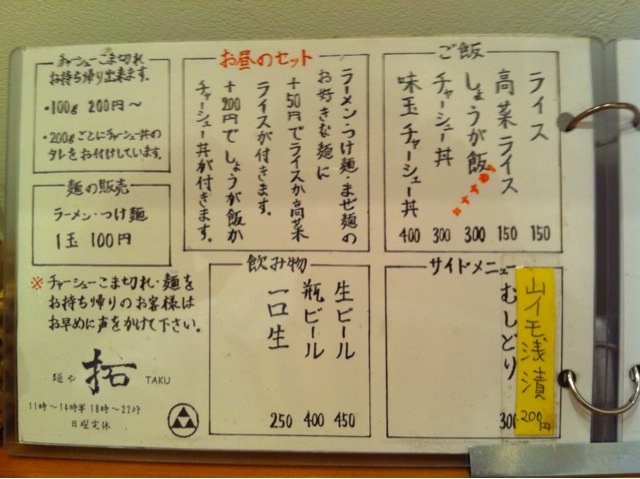 ご飯
ライス 150
高菜ライス 150
しょうが飯 300
おすすめ
チャーシュー丼 300
味玉チャーシュー丼 400
お昼のセット
ラーメン・つけ麺・まぜ麺の
お好きな麺に
+50円でライスか高菜
ライスが付きます。
+200円でしょうが飯か
チャーシュー丼が付きます。
チャーシューこま切れ
お持ち帰り出来ます。
・100g 200円〜
・200gごとにチャーシュー丼の
タレをお付けしています。
麺の販売
ラーメン・つけ麺
1玉 100円
※チャーシューこま切れ・麺を
お持ち帰りのお客様は
お早めに声をかけて下さい。
麺や 拓 TAKU
11時〜14時半 18時〜22時
日曜定休
飲み物
生ビール 450
瓶ビール 400
一口生 250
サイドメニュー
山イモ浅漬 200円
むしどり